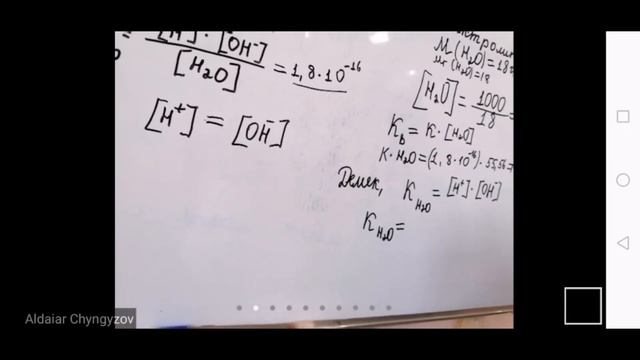 [H]·[OH⁻]
[H₂O] = 1,8·10⁻¹⁶
[H⁺] = [OH⁻]
M (H₂O) = 18
Mr (H₂O) = 18
[H₂O] = 1000
18 =
K_b = K·[H₂O]
K·H₂O = (1,8·10⁻¹⁶)·55,56 =
Демек, K_H₂O = [H⁺]·[OH⁻]
K_H₂O =
Aldaiar Chyngyzov